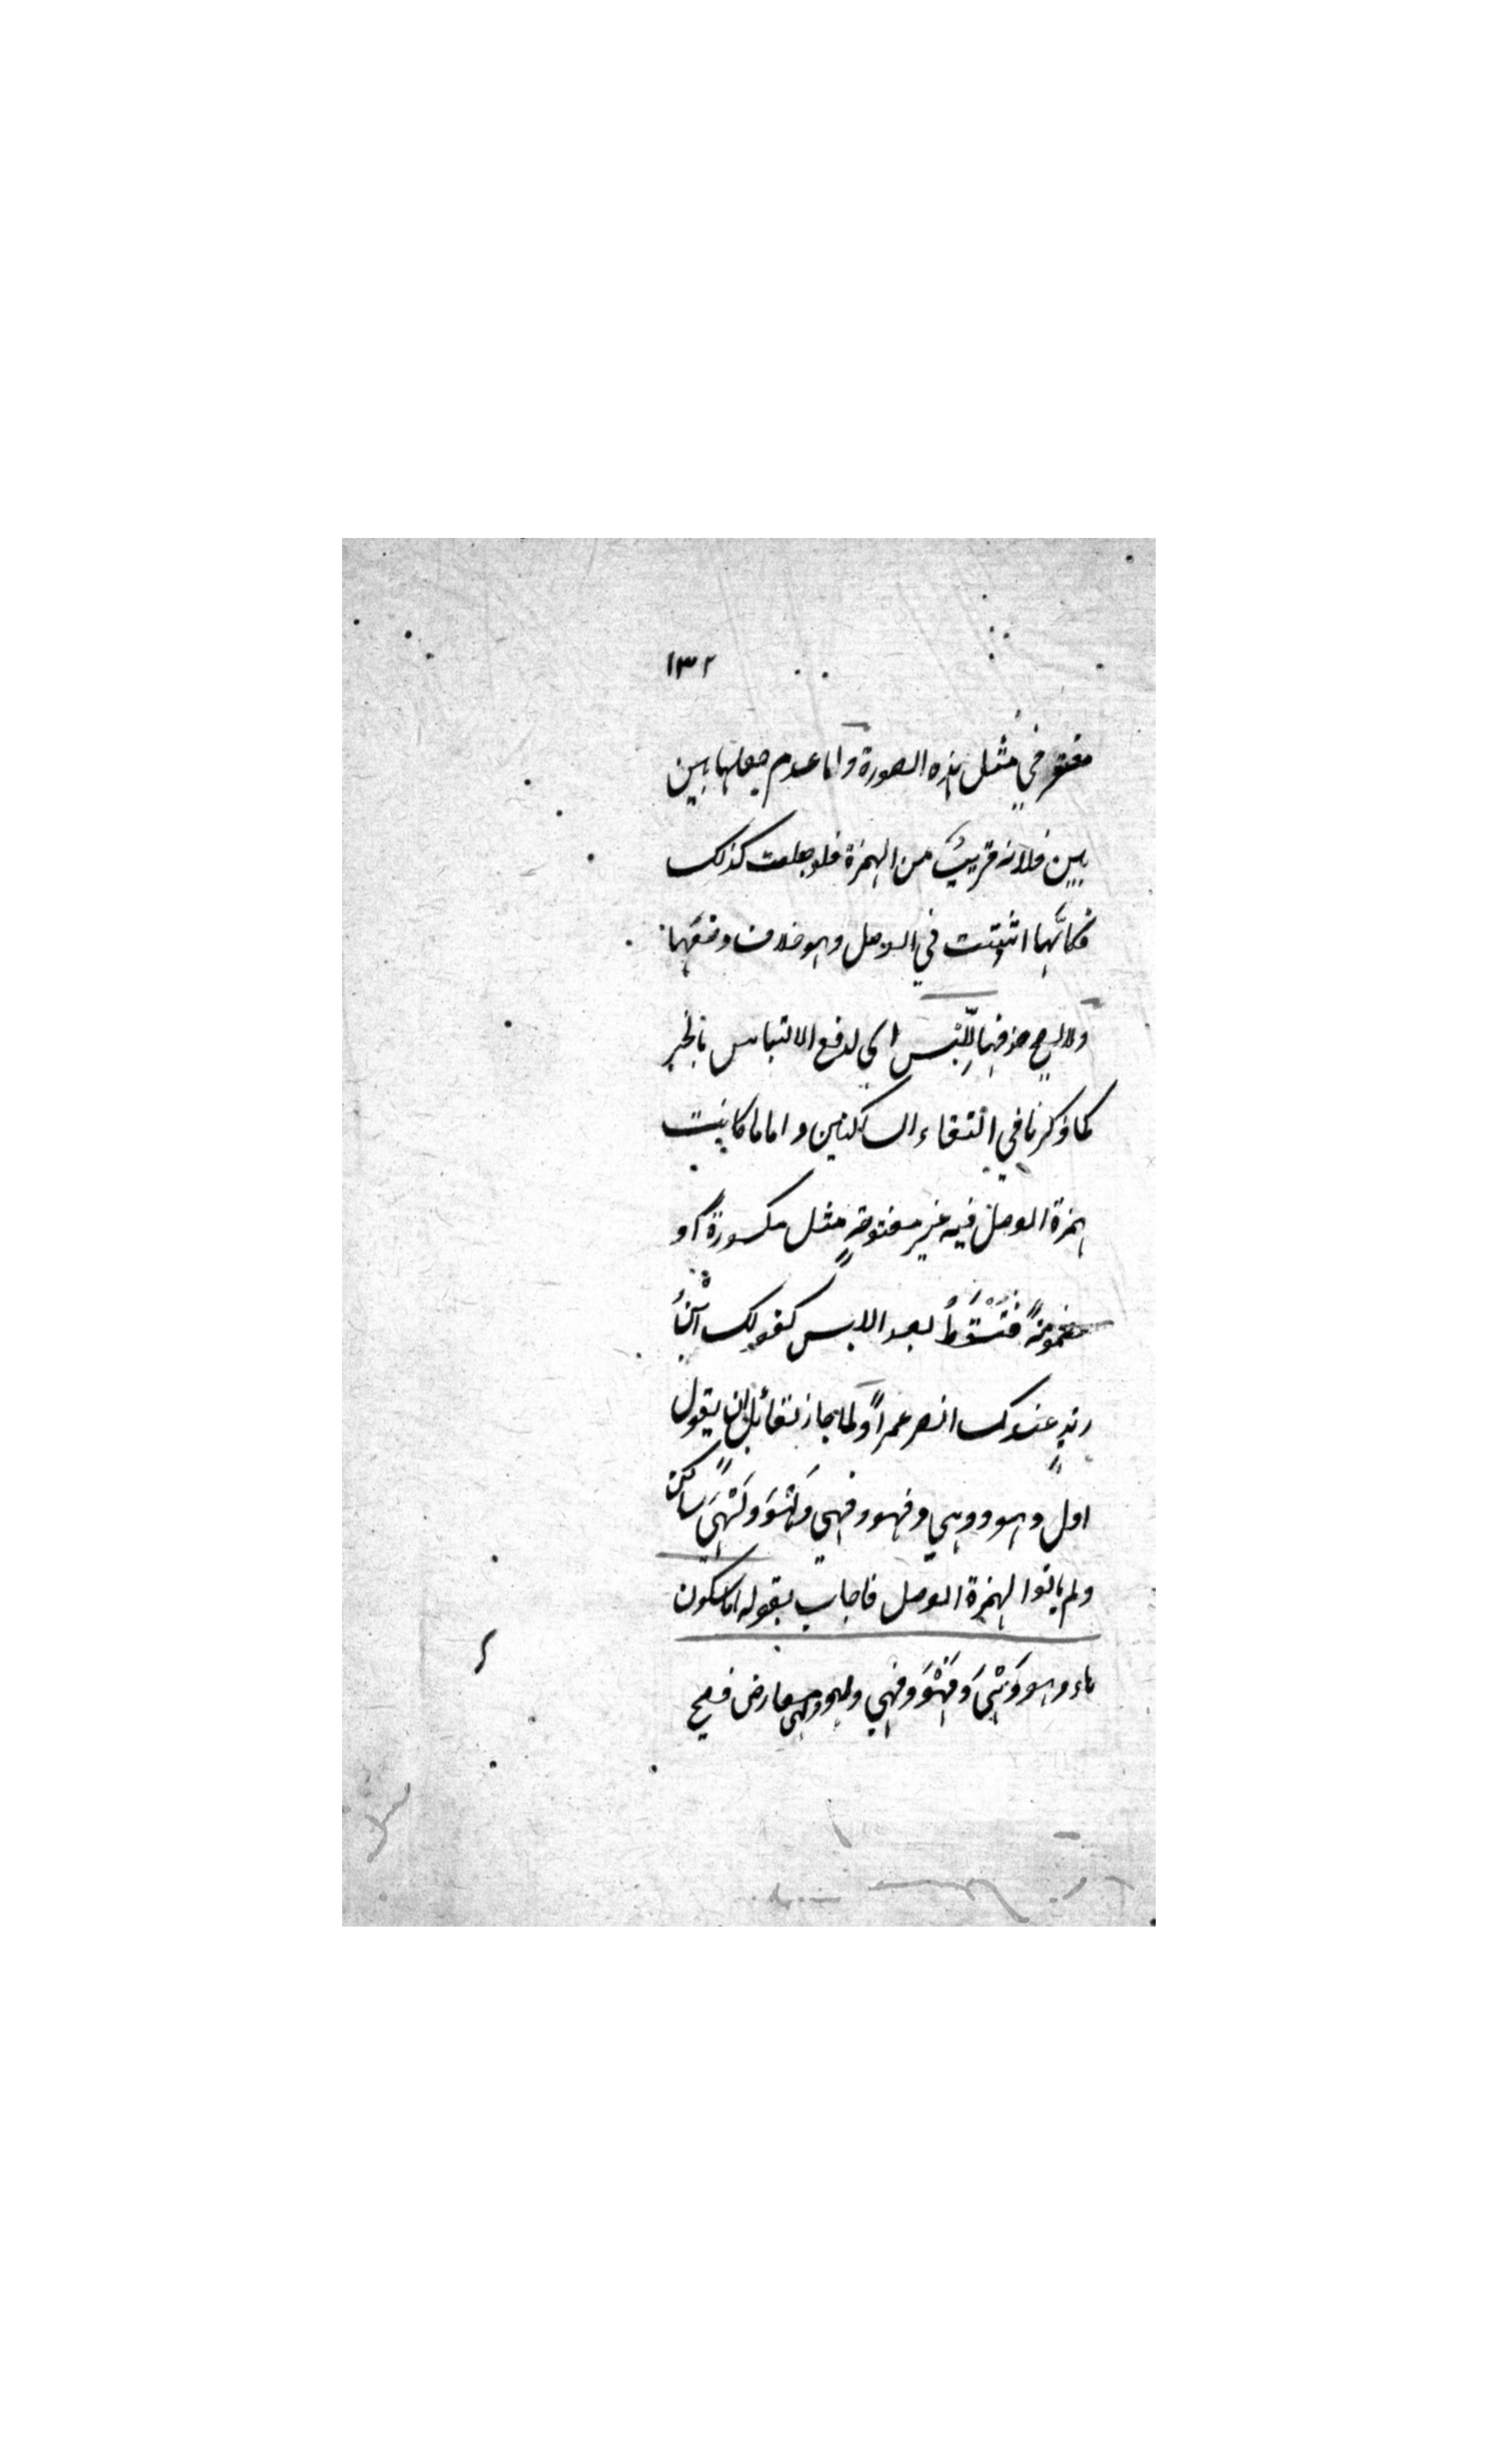 ١٣٢
مغتفر في مثل هذه الصورة واما عدم جعلها بين
بين فلانه قريبٌ من الهمزة فلو جعلت كذلك
فكانّها اثبتت في الوصل وهو خلاف وضعها
ولا يصح حذفها لِلَّبْس اي لدفع الالتباس بالخبر
كما ذكرنا في التقاء الساكنين واما ما كانت
همزة الوصل فيه غير مفتوحةٍ مثل مكسورةً او
مضمومةً فَتَسْقُطُ بعد اللابس كقولك آبْنُ
زيدٍ عندك انصر عمراً ولما جاز لقائل ان يقول
اول وهو وهي وفهو وفهي ولَهْوَ ولَهْيَ ساكن
ولم ياتوا بهمزة الوصل فاجاب بقوله اما سكون
هاء وهو وَهْيَ وَفَهْوَ وفهي ولهو ولهي عارض فصيح